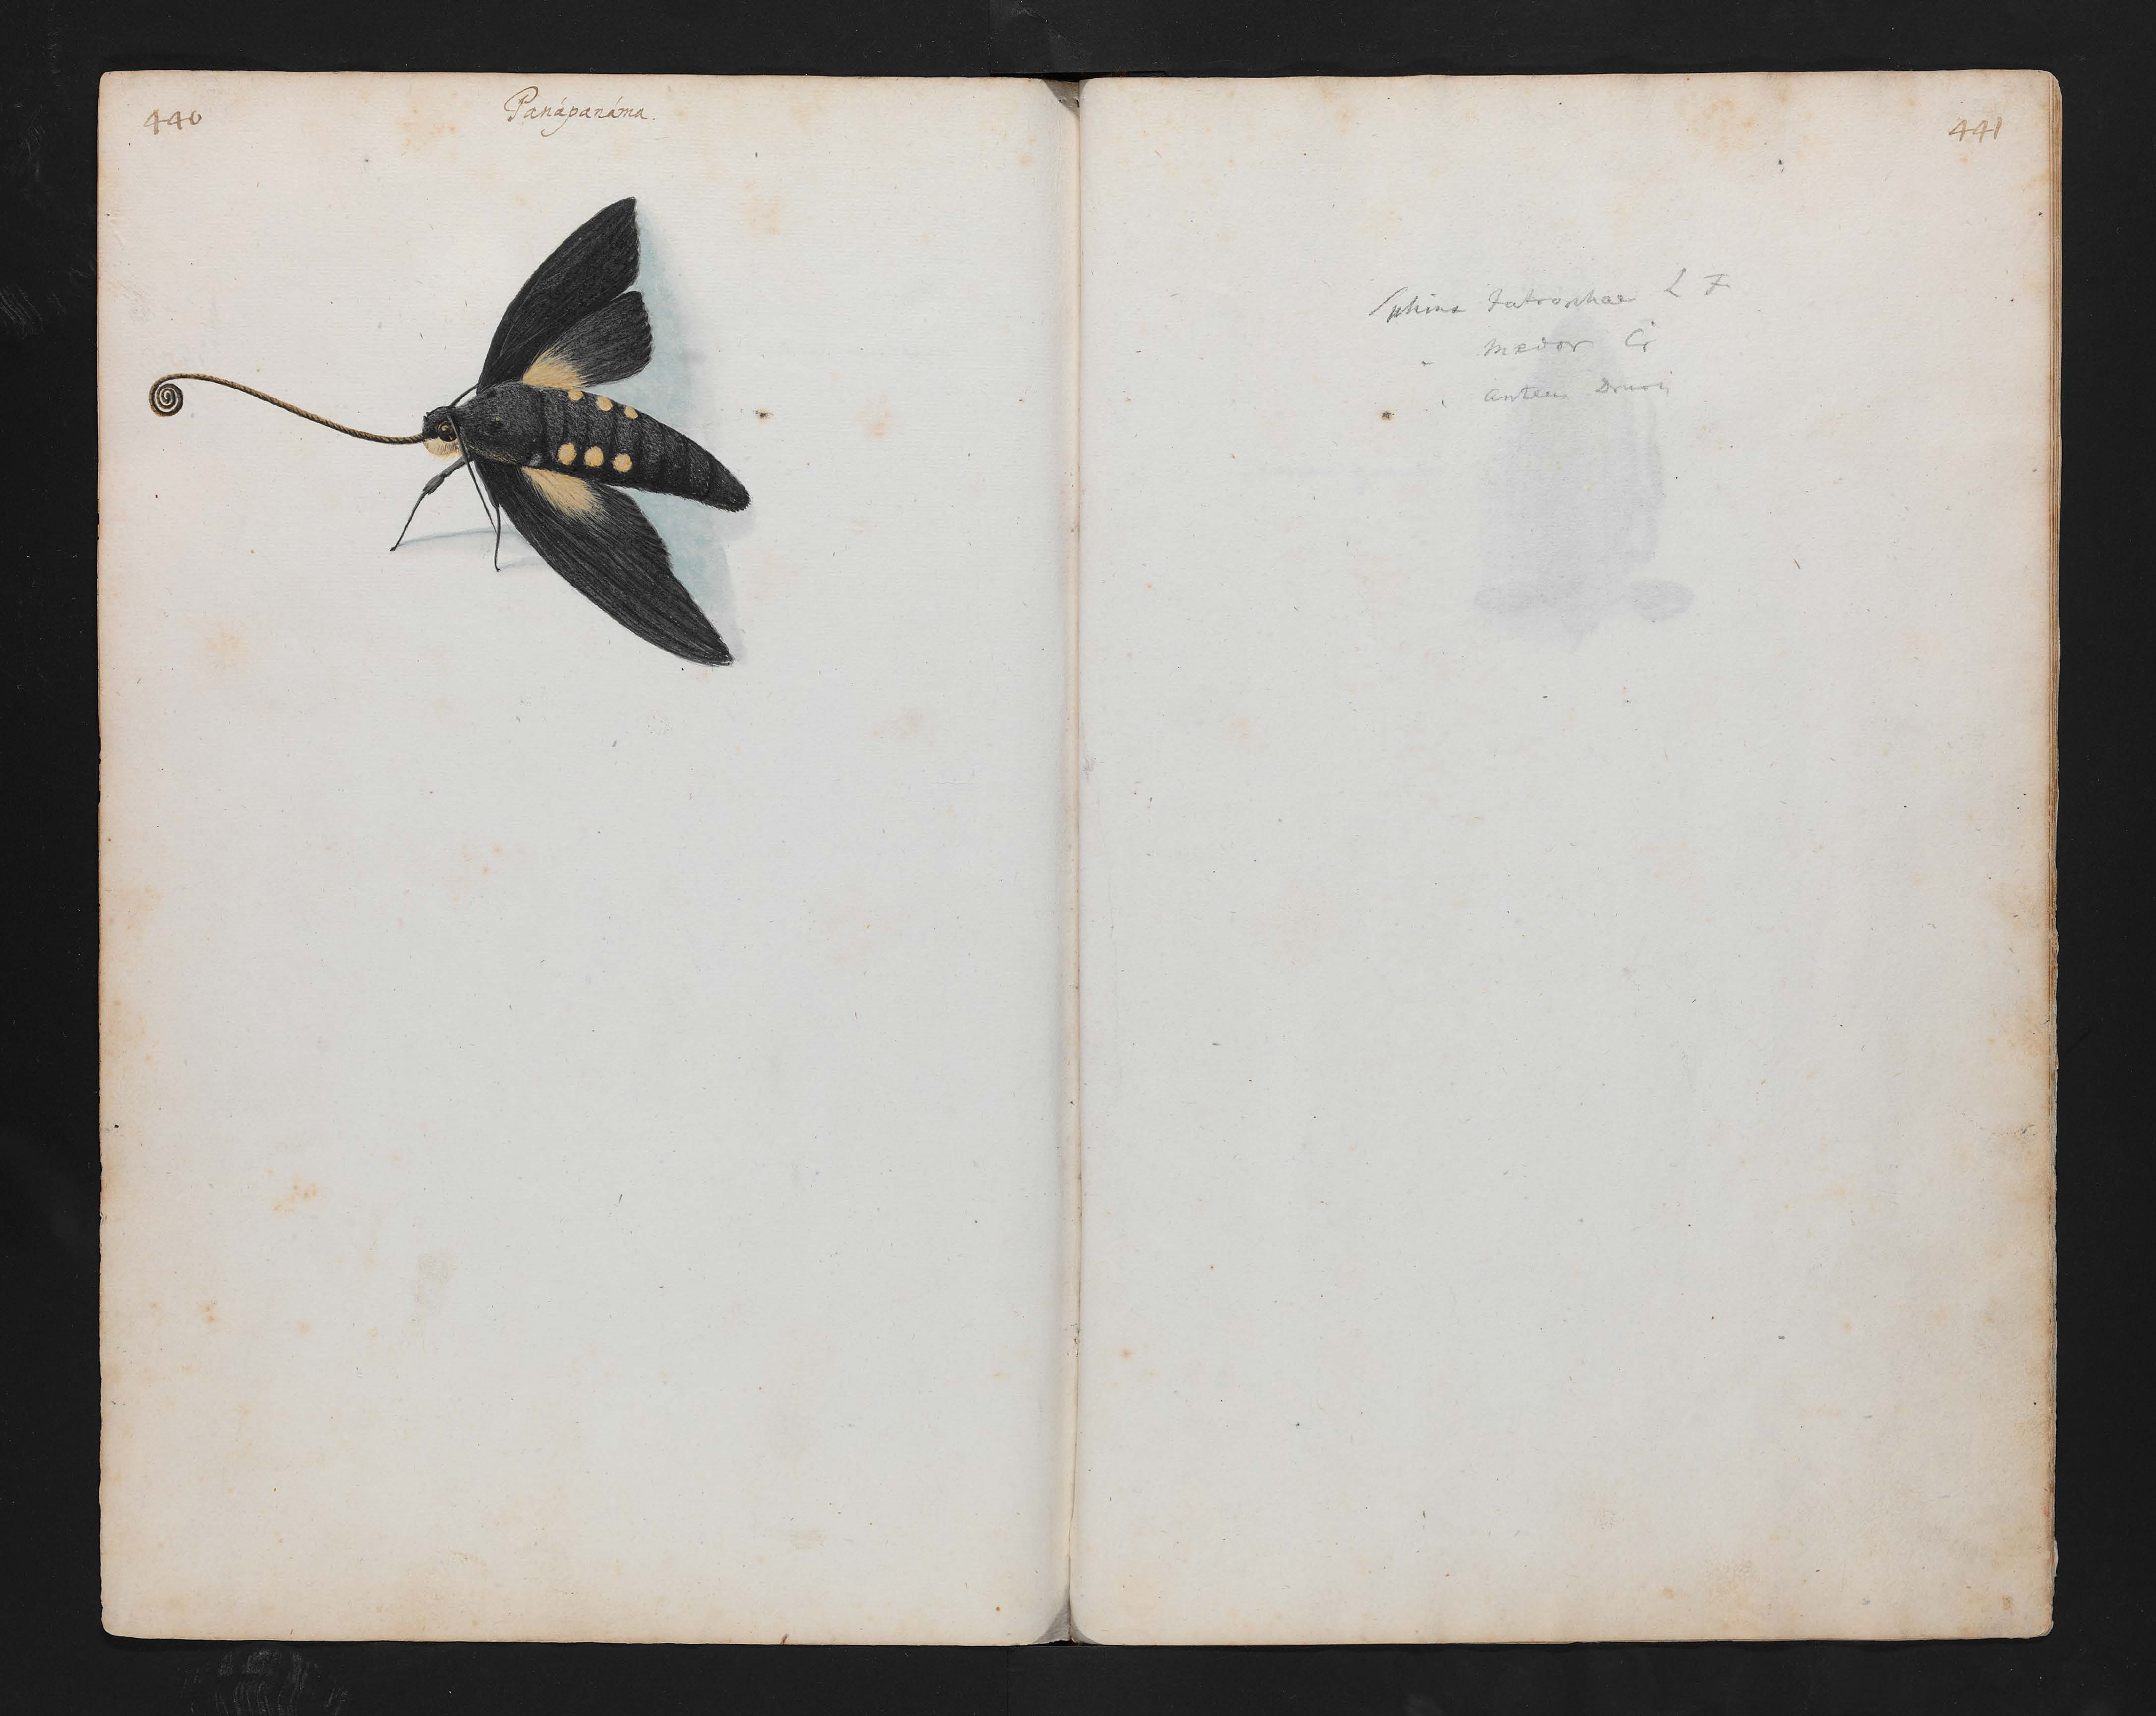 440
Panápanáma.
441
Sphinx Iatrophae L F
- Medor Cr
. anteus Drurii